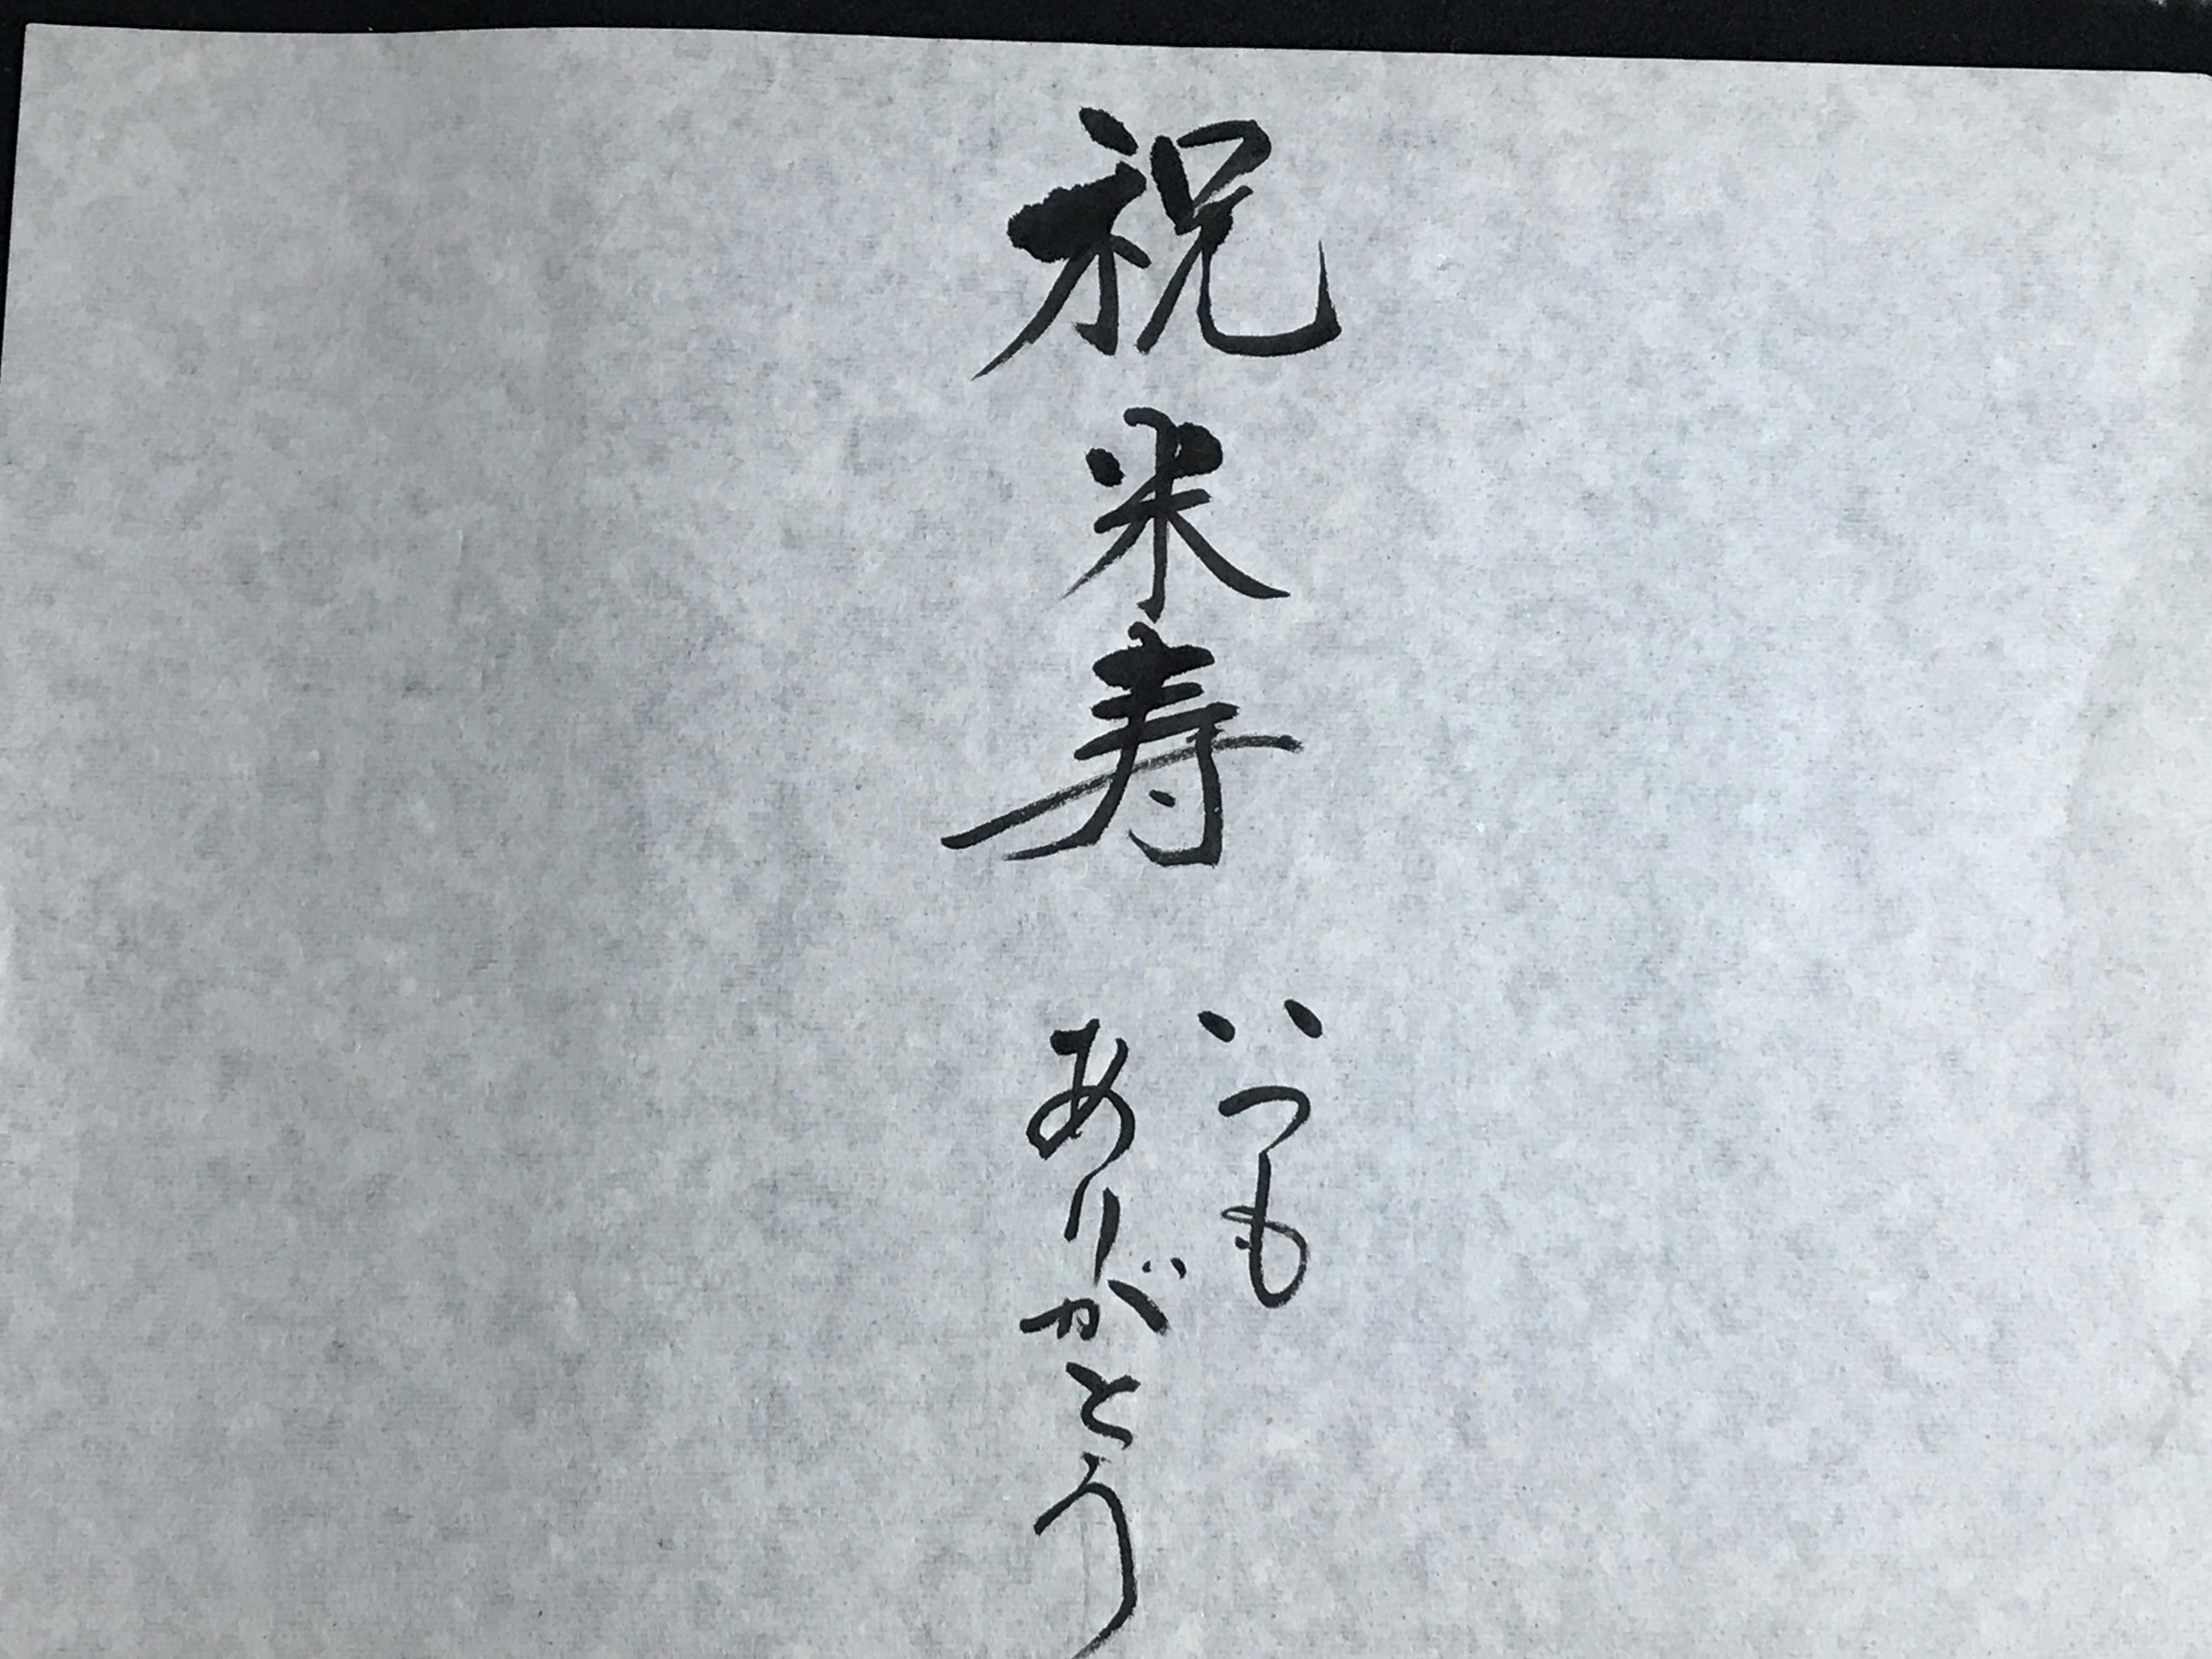 祝米寿
いつも
ありがとう